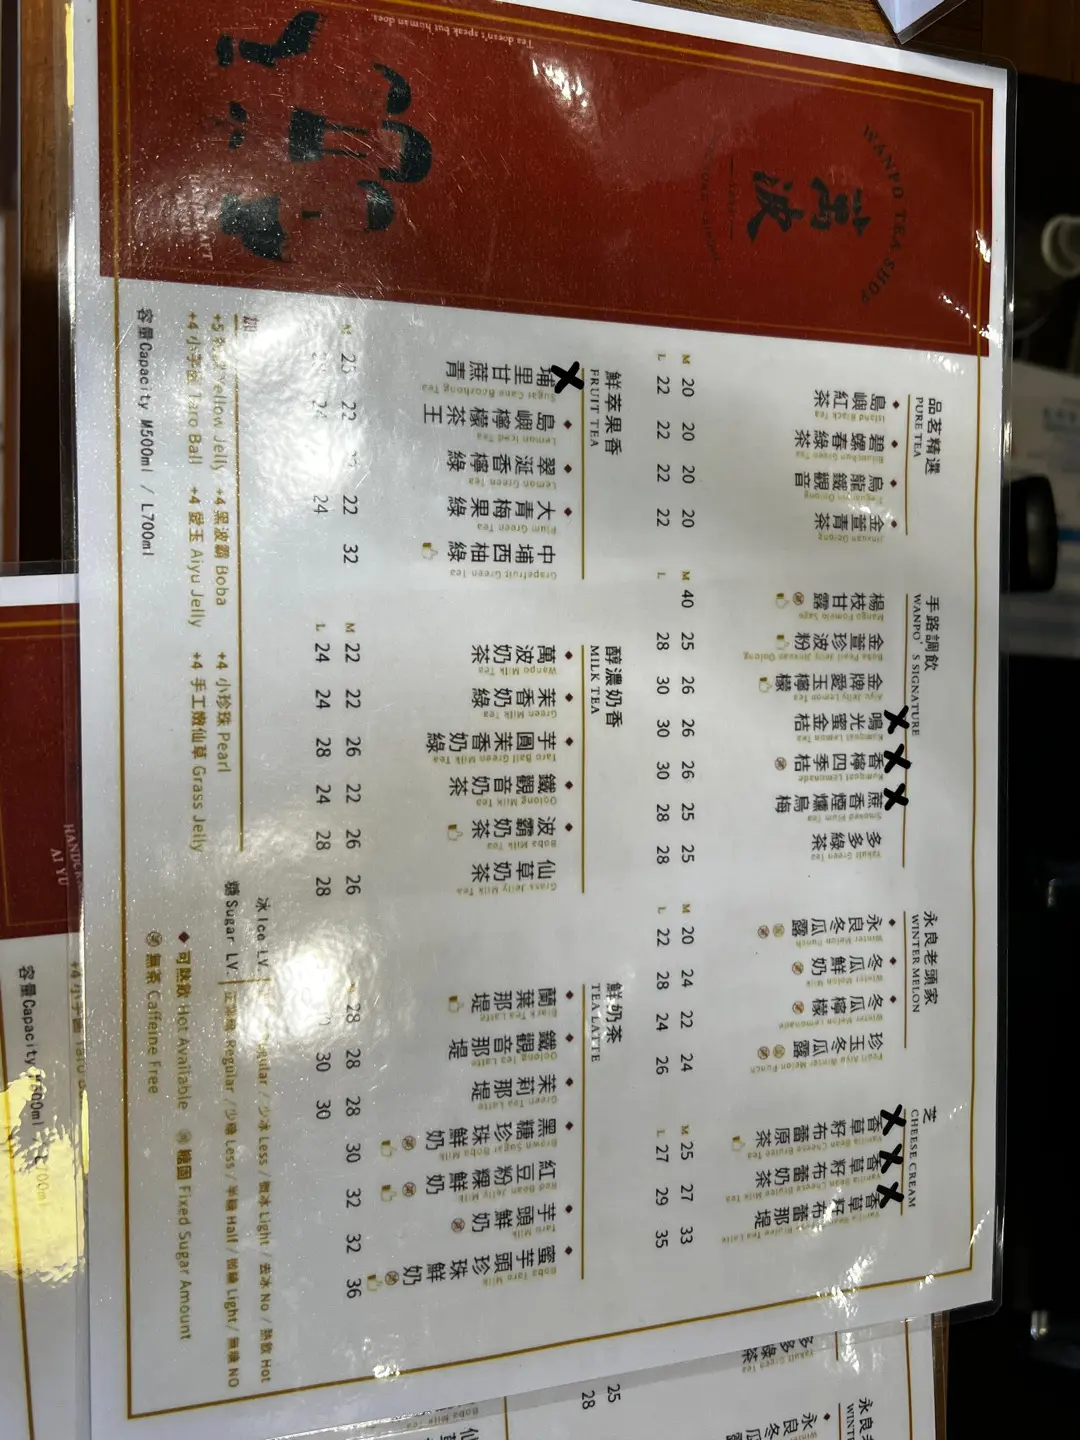 WANPO TEA SHOP
萬波
Tea doesn't speak but human does.
品茗精選
PURE TEA
島嶼紅茶
Island Black Tea
M 20
L 22
碧螺春綠茶
Biluochun Green Tea
20
22
烏龍鐵觀音
Tieguanyin Oolong
20
22
金萱青茶
Jinxuan Oolong
20
22
手路調飲
WANPO'S SIGNATURE
楊枝甘露
Mango Pomelo Sago
M 40
L
金萱珍波粉
Boba Pearl Jelly Jinxuan Oolong
25
28
金牌愛玉檸檬
Aiyu Jelly Lemon Tea
26
30
鳴光蜜金桔
Kumquat Lemon Tea
26
30
香檸四季桔
Kumquat Lemonade
26
30
蔗香煙燻烏梅
Smoked Plum Tea
25
28
多多綠茶
Yakult Green Tea
25
28
永良老頭家
WINTER MELON
永良冬瓜露
Winter Melon Punch
M 20
L 22
冬瓜鮮奶
Winter Melon Milk
24
28
冬瓜檸檬
Winter Melon Lemonade
22
24
珍玉冬瓜露
Pearl Aiyu Winter Melon Punch
24
26
芝
CHEESE CREAM
香草籽布蕾原茶
Vanilla Bean Cheese Brulee Tea
M 25
L 27
香草籽布蕾奶茶
Vanilla Bean Cheese Brulee Milk Tea
27
29
香草籽布蕾那堤
Vanilla Bean Brulee Tea Latte
33
35
鮮萃果香
FRUIT TEA
埔里甘蔗青
Sugar Cane Baozhong Tea
M 25
島嶼檸檬茶王
Lemon Iced Tea
22
24
翠涎香檸綠
Lemon Green Tea
大青梅果綠
Plum Green Tea
22
24
中埔西柚綠
Grapefruit Green Tea
32
醇濃奶香
MILK TEA
萬波奶茶
Wanpo Milk Tea
M 22
L 24
茉香奶綠
Green Milk Tea
22
24
芋圓茉香奶綠
Taro Ball Green Milk Tea
26
28
鐵觀音奶茶
Oolong Milk Tea
22
24
波霸奶茶
Boba Milk Tea
26
28
仙草奶茶
Grass Jelly Milk Tea
26
28
鮮奶茶
TEA LATTE
蘭葉那堤
Black Tea Latte
28
鐵觀音那堤
Oolong Tea Latte
28
30
茉莉那堤
Green Tea Latte
28
30
黑糖珍珠鮮奶
Brown Sugar Boba Milk
30
紅豆粉粿鮮奶
Red Bean Jelly Milk
32
芋頭鮮奶
Taro Milk
32
蜜芋頭珍珠鮮奶
Boba Taro Milk
36
Yellow Jelly +4 黑波霸 Boba +4 小珍珠 Pearl
+4 小芋圓 Taro Ball +4 愛玉 Aiyu Jelly +4 手工嫩仙草 Grass Jelly
容量Capacity M500ml / L700ml
冰 Ice LV. Regular / 少冰 Less / 微冰 Light / 去冰 No / 熱飲 Hot
糖 Sugar LV. Regular / 少糖 Less / 半糖 Half / 微糖 Light / 無糖 NO
可熱飲 Hot Available 糖固 Fixed Sugar Amount
無茶 Caffeine Free
容量Capacity
多多綠茶
Yakult Green Tea
25
28